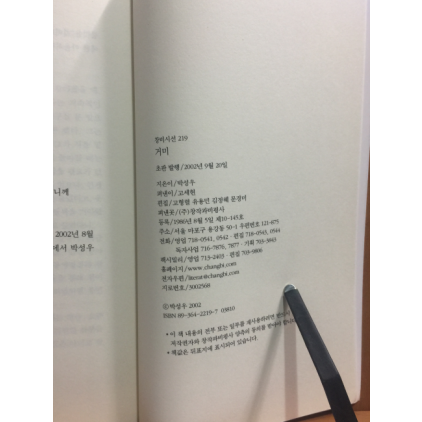 니께
2002년 8월
에서 박성우
창비시선 219
거미
초판 발행/2002년 9월 20일
지은이/박성우
펴낸이/고세현
편집/고형렬 유용민 김정혜 문경미
펴낸곳/(주)창작과비평사
등록/1986년 8월 5일 제10-145호
주소/서울 마포구 용강동 50-1 우편번호 121-875
전화/영업 718-0541, 0542·편집 718-0543, 0544
독자사업 716-7876, 7877·기획 703-3843
팩시밀리/영업 713-2403·편집 703-9806
홈페이지/www.changbi.com
전자우편/
지로번호/3002568
ⓒ박성우 2002
ISBN 89-364-2219-7 03810
* 이 책 내용의 전부 또는 일부를 재사용하려면 반드시
저작권자와 창작과비평사 양측의 동의를 받아야 합니다.
* 책값은 뒤표지에 표시되어 있습니다.